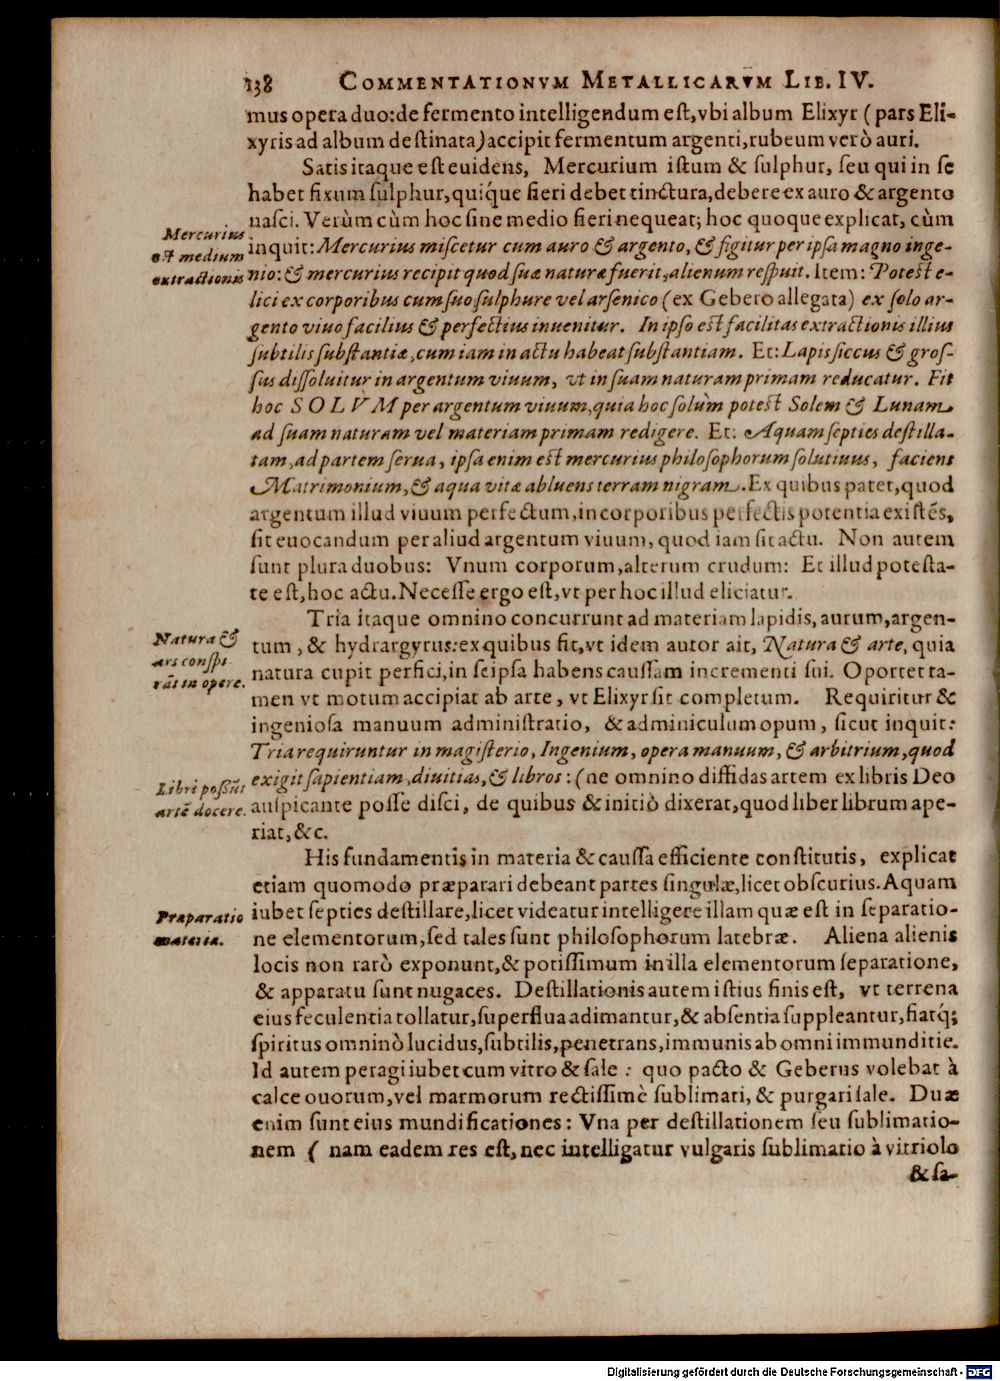 138 COMMENTATIONVM METALLICARVM LIB. IV.
mus opera duo: de fermento intelligendum est, vbi album Elixyr (pars Eli-
xyris ad album destinata) accipit fermentum argenti, rubeum verò auri.
Satis itaque est euidens, Mercurium istum & sulphur, seu qui in se
habet fixum sulphur, quique fieri debet tinctura, debere ex auro & argento
nasci. Verùm cùm hoc sine medio fieri nequeat; hoc quoque explicat, cùm
Mercurius
est medium
extractionis
inquit: Mercurius miscetur cum auro & argento, & figitur per ipsa magno inge-
nio: & mercurius recipit quod suæ naturæ fuerit, alienum respuit. Item: Potest e-
lici ex corporibus cum suo sulphure vel arsenico (ex Gebero allegata) ex solo ar-
gento viuo facilius & perfectius inuenitur. In ipso est facilitas extractionis illius
subtilis substantiæ, cum iam in actu habeat substantiam. Et: Lapis siccus & gros-
sus dissoluitur in argentum viuum, vt in suam naturam primam reducatur. Fit
hoc SOLVM per argentum viuum, quia hoc solùm potest Solem & Lunam
ad suam naturam vel materiam primam redigere. Et: Aquam septies destilla-
tam, ad partem serua, ipsa enim est mercurius philosophorum solutiuus, faciens
Matrimonium, & aqua vitæ abluens terram nigram. Ex quibus patet, quod
argentum illud viuum perfectum, in corporibus perfectis potentia existēs,
sit euocandum per aliud argentum viuum, quod iam sit actu. Non autem
sunt plura duobus: Vnum corporum, alterum crudum: Et illud potesta-
te est, hoc actu. Necesse ergo est, vt per hoc illud eliciatur.
Tria itaque omnino concurrunt ad materiam lapidis, aurum, argen-
Natura &
ars conspi-
rāt in opere.
tum, & hydrargyrus: ex quibus fit, vt idem autor ait, Natura & arte, quia
natura cupit perfici, in seipsa habens caussam incrementi sui. Oportet ta-
men vt motum accipiat ab arte, vt Elixyr sit completum. Requiritur &
ingeniosa manuum administratio, & adminiculum opum, sicut inquit:
Tria requiruntur in magisterio, Ingenium, opera manuum, & arbitrium, quod
Libri possūt
artē docere.
exigit sapientiam, diuitias, & libros: (ne omnino diffidas artem ex libris Deo
auspicante posse disci, de quibus & initiò dixerat, quod liber librum ape-
riat, &c.
His fundamentis in materia & caussa efficiente constitutis, explicat
etiam quomodo præparari debeant partes singulæ, licet obscurius. Aquam
Præparatio
materiæ.
iubet septies destillare, licet videatur intelligere illam quæ est in separatio-
ne elementorum, sed tales sunt philosophorum latebræ. Aliena alienis
locis non rarò exponunt, & potissimum in illa elementorum separatione,
& apparatu sunt nugaces. Destillationis autem istius finis est, vt terrena
eius feculentia tollatur, superflua adimantur, & absentia suppleantur, fiatq́;
spiritus omninò lucidus, subtilis, penetrans, immunis ab omni immunditie.
Id autem peragi iubet cum vitro & sale: quo pacto & Geberus volebat à
calce ouorum, vel marmorum rectissimè sublimari, & purgari sale. Duæ
enim sunt eius mundificationes: Vna per destillationem seu sublimatio-
nem (nam eadem res est, nec intelligatur vulgaris sublimatio à vitriolo
& sa-
Digitalisierung gefördert durch die Deutsche Forschungsgemeinschaft - DFG